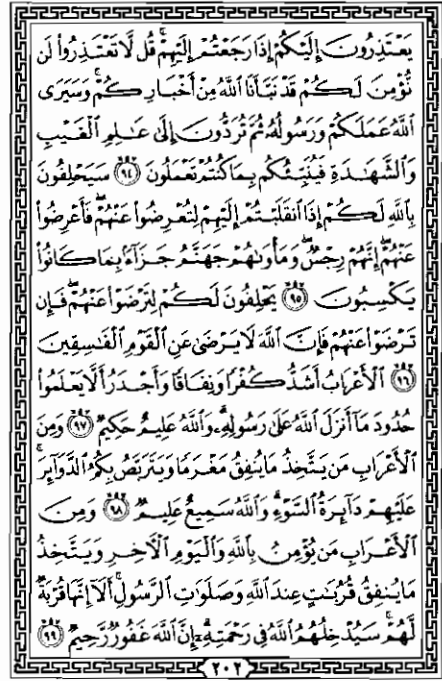 يَعْتَذِرُونَ إِلَيْكُمْ إِذَا رَجَعْتُمْ إِلَيْهِمْ ۚ قُل لَّا تَعْتَذِرُوا۟ لَن
نُّؤْمِنَ لَكُمْ قَدْ نَبَّأَنَا ٱللَّهُ مِنْ أَخْبَارِكُمْ ۚ وَسَيَرَى
ٱللَّهُ عَمَلَكُمْ وَرَسُولُهُۥ ثُمَّ تُرَدُّونَ إِلَىٰ عَـٰلِمِ ٱلْغَيْبِ
وَٱلشَّهَـٰدَةِ فَيُنَبِّئُكُم بِمَا كُنتُمْ تَعْمَلُونَ ٩٤ سَيَحْلِفُونَ
بِٱللَّهِ لَكُمْ إِذَا ٱنقَلَبْتُمْ إِلَيْهِمْ لِتُعْرِضُوا۟ عَنْهُمْ ۖ فَأَعْرِضُوا۟
عَنْهُمْ ۖ إِنَّهُمْ رِجْسٌ ۖ وَمَأْوَىٰهُمْ جَهَنَّمُ جَزَآءًۢ بِمَا كَانُوا۟
يَكْسِبُونَ ٩٥ يَحْلِفُونَ لَكُمْ لِتَرْضَوْا۟ عَنْهُمْ ۖ فَإِن
تَرْضَوْا۟ عَنْهُمْ فَإِنَّ ٱللَّهَ لَا يَرْضَىٰ عَنِ ٱلْقَوْمِ ٱلْفَـٰسِقِينَ
٩٦ ٱلْأَعْرَابُ أَشَدُّ كُفْرًا وَنِفَاقًا وَأَجْدَرُ أَلَّا يَعْلَمُوا۟
حُدُودَ مَآ أَنزَلَ ٱللَّهُ عَلَىٰ رَسُولِهِۦ ۗ وَٱللَّهُ عَلِيمٌ حَكِيمٌ ٩٧ وَمِنَ
ٱلْأَعْرَابِ مَن يَتَّخِذُ مَا يُنفِقُ مَغْرَمًا وَيَتَرَبَّصُ بِكُمُ ٱلدَّوَآئِرَ ۚ
عَلَيْهِمْ دَآئِرَةُ ٱلسَّوْءِ ۗ وَٱللَّهُ سَمِيعٌ عَلِيمٌ ٩٨ وَمِنَ
ٱلْأَعْرَابِ مَن يُؤْمِنُ بِٱللَّهِ وَٱلْيَوْمِ ٱلْـَٔاخِرِ وَيَتَّخِذُ
مَا يُنفِقُ قُرُبَـٰتٍ عِندَ ٱللَّهِ وَصَلَوَٰتِ ٱلرَّسُولِ ۚ أَلَآ إِنَّهَا قُرْبَةٌ
لَّهُمْ ۚ سَيُدْخِلُهُمُ ٱللَّهُ فِى رَحْمَتِهِۦٓ ۗ إِنَّ ٱللَّهَ غَفُورٌ رَّحِيمٌ ٩٩
٢٠٢